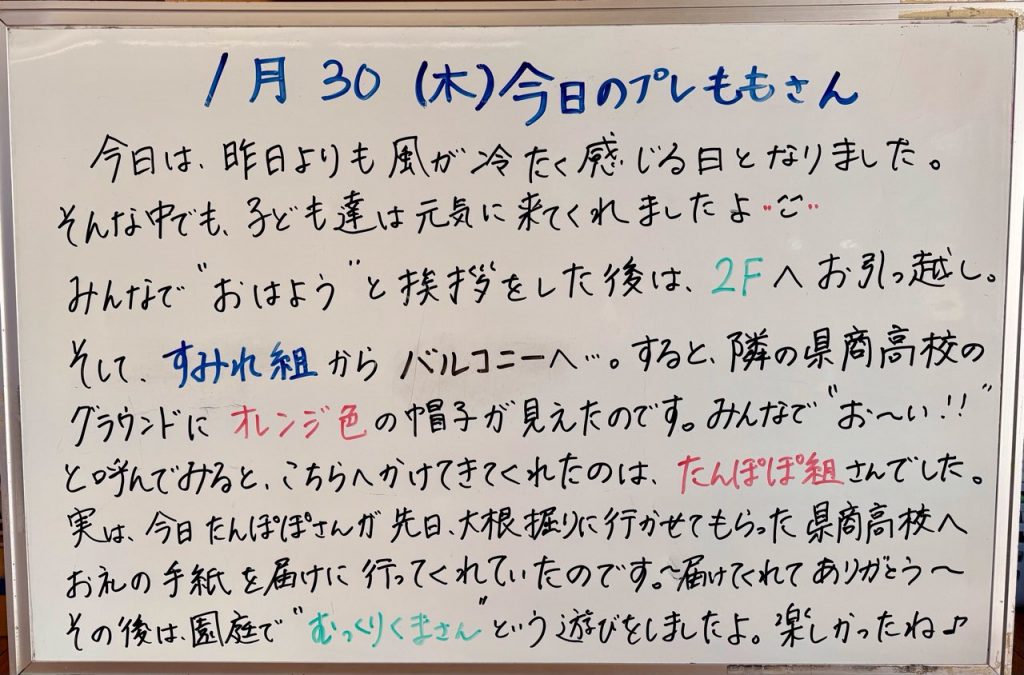 1月 30 (木)今日のプレももさん
今日は、昨日よりも風が冷たく感じる日となりました。
そんな中でも、子ども達は元気に来てくれましたよ
みんなで"おはよう"と挨拶をした後は、2Fへお引っ越し。
そして、すみれ組からバルコニーへ…。すると、隣の県商高校の
グラウンドにオレンジ色の帽子が見えたのです。みんなで"お〜い!!"
と呼んでみると、こちらへかけてきてくれたのは、たんぽぽ組さんでした。
実は、今日たんぽぽさんが先日、大根掘りに行かせてもらった県商高校へ
お礼の手紙を届けに行ってくれていたのです。〜届けてくれてありがとう〜
その後は、園庭で"むっくりくまさん"という遊びをしましたよ。楽しかったね♪